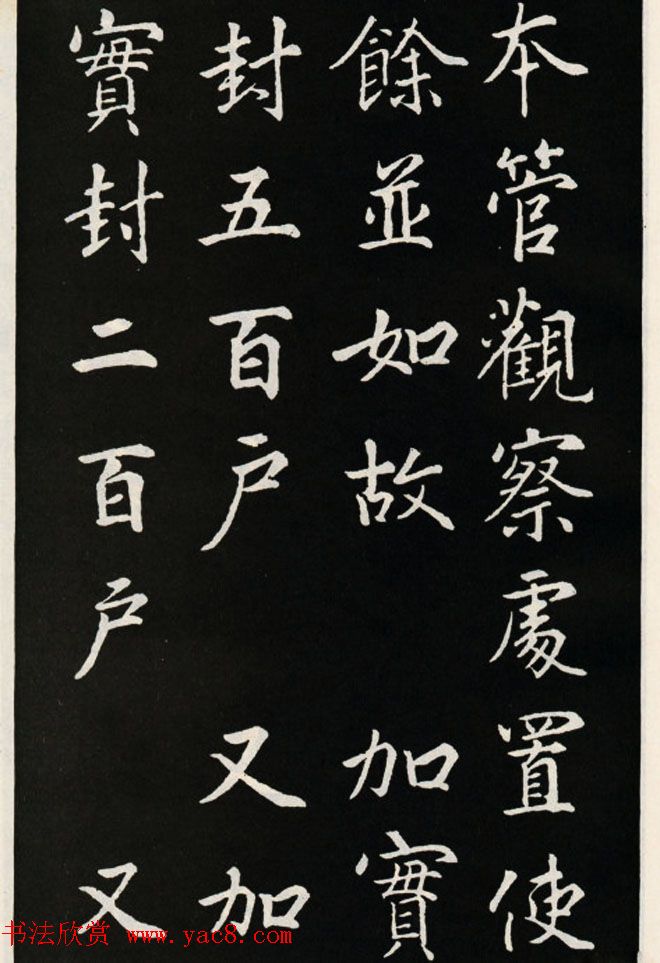 本管觀察處置使
餘並如故 加實
封五百户 又加
實封二百户 又
书法欣赏 www.yac8.com